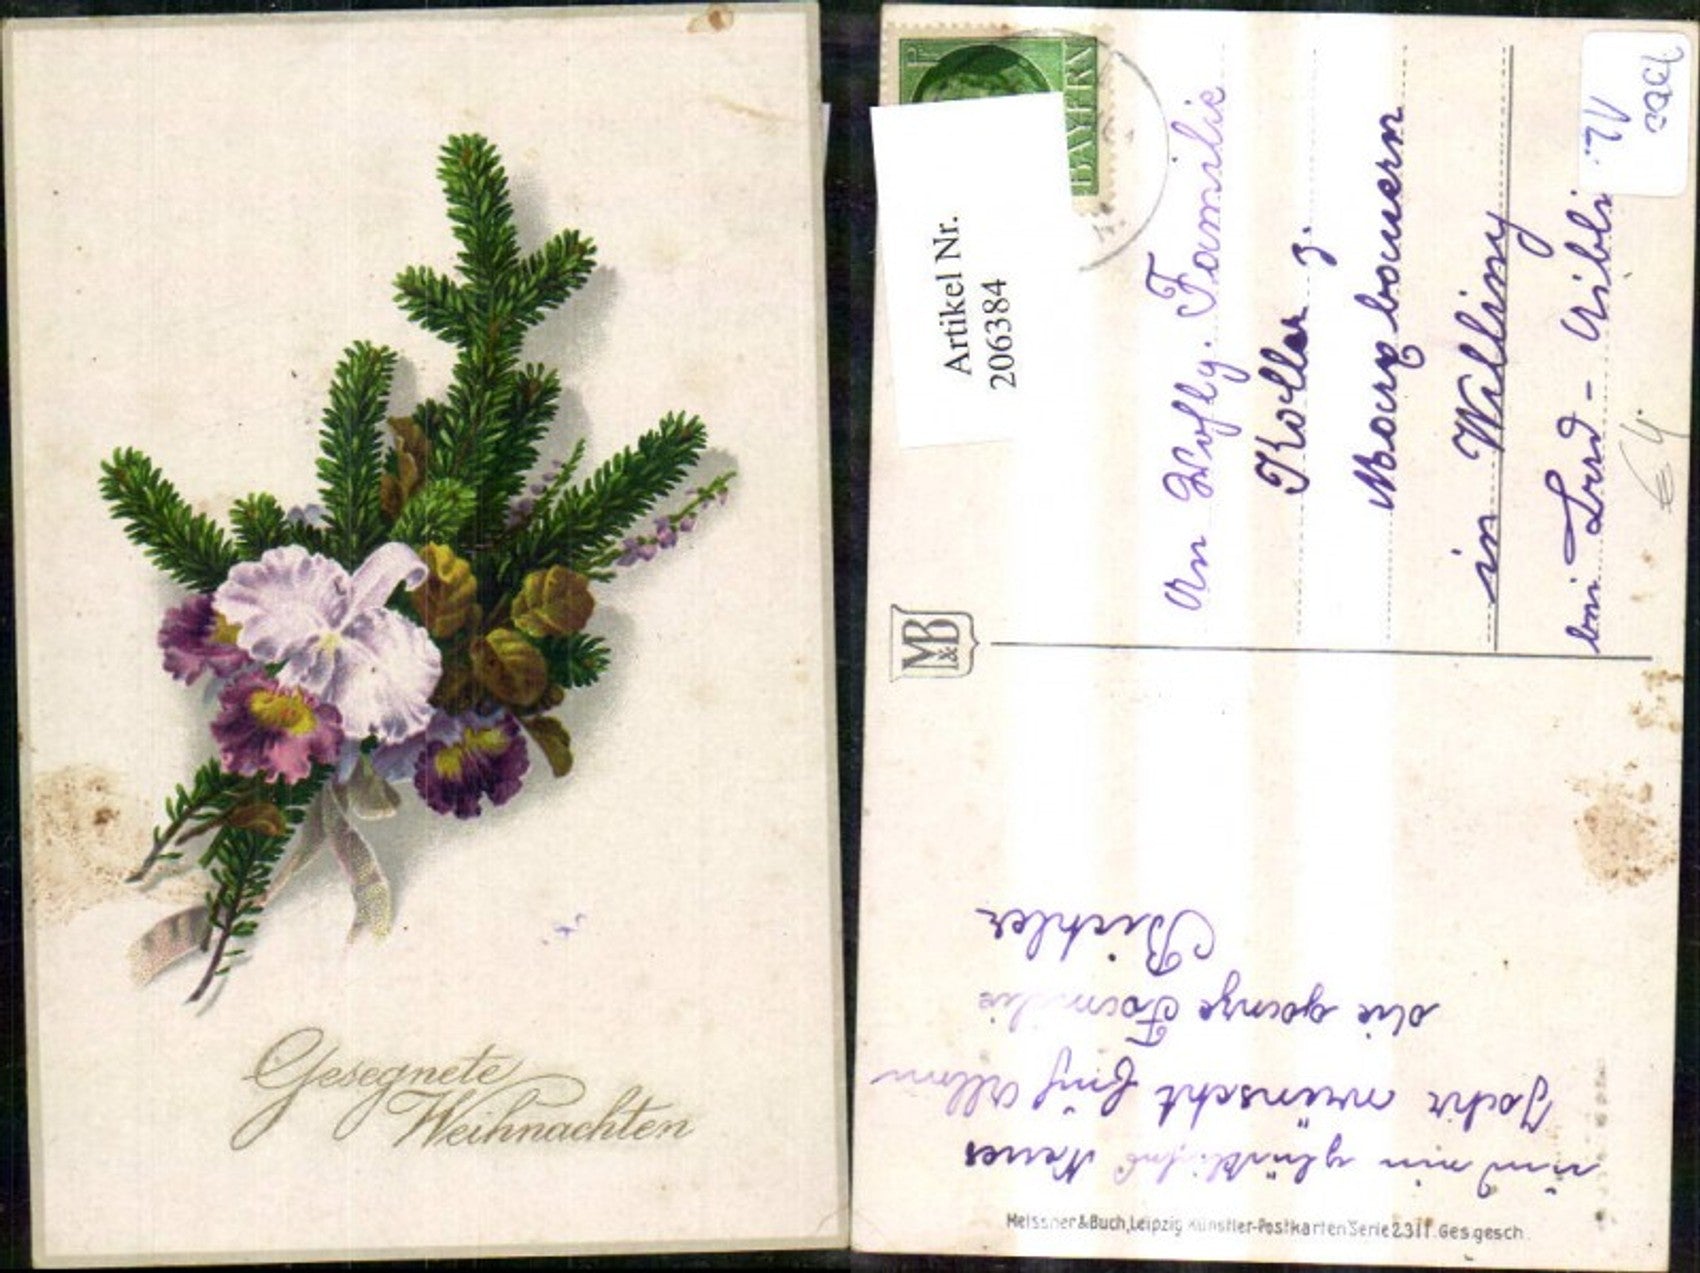 Gesegnete
Weihnachten
BAYERN
Artikel Nr.
206384
An Hoflg. Familie
Koller z.
in Willing
bei
M&B
und ein glückliches Neues
Jahr wünscht Euch Allen
die ganze Familie
Bichler
Meissner&Buch, Leipzig Künstler-Postkarten Serie 2311. Ges.gesch.
€ 4.